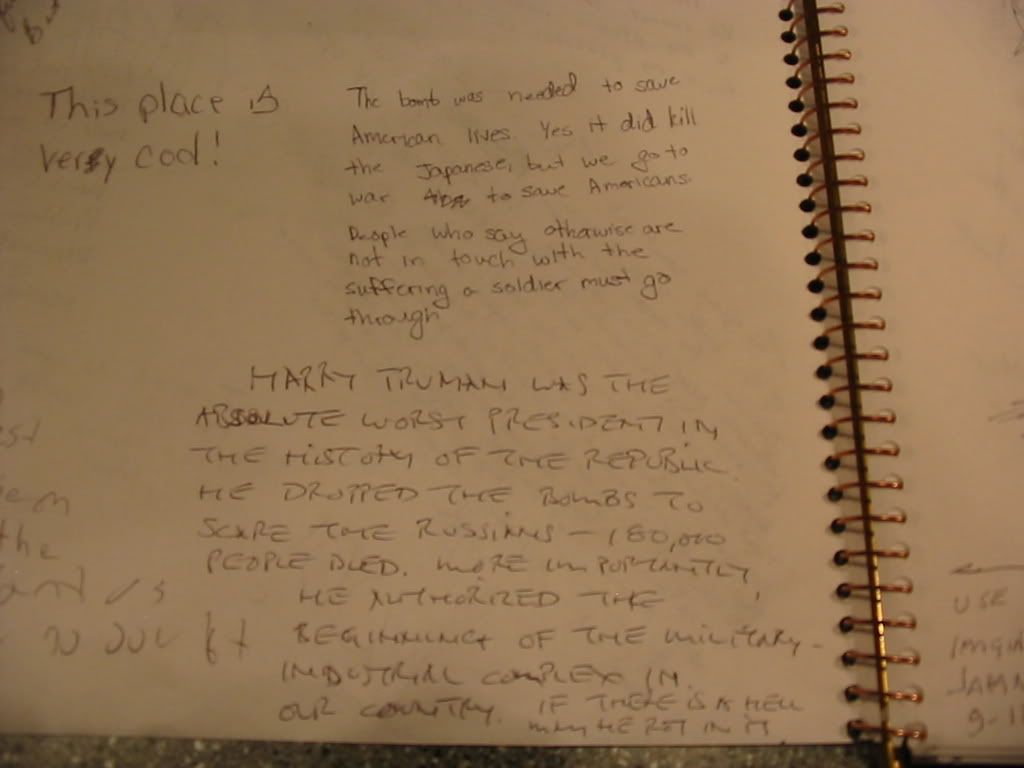 This place is
very cool!
The bomb was needed to save
American lives. Yes it did kill
the Japanese, but we go to
war to save Americans.
People who say otherwise are
not in touch with the
suffering a soldier must go
through
HARRY TRUMAN WAS THE
ABSOLUTE WORST PRESIDENT IN
THE HISTORY OF THE REPUBLIC
HE DROPPED THE BOMBS TO
SCARE THE RUSSIANS – 180,000
PEOPLE DIED. MORE IMPORTANTLY,
HE AUTHORIZED THE
BEGINNING OF THE MILITARY-
INDUSTRIAL COMPLEX IN
OUR COUNTRY. IF THERE IS A HELL
MAY HE ROT IN IT
the
USE